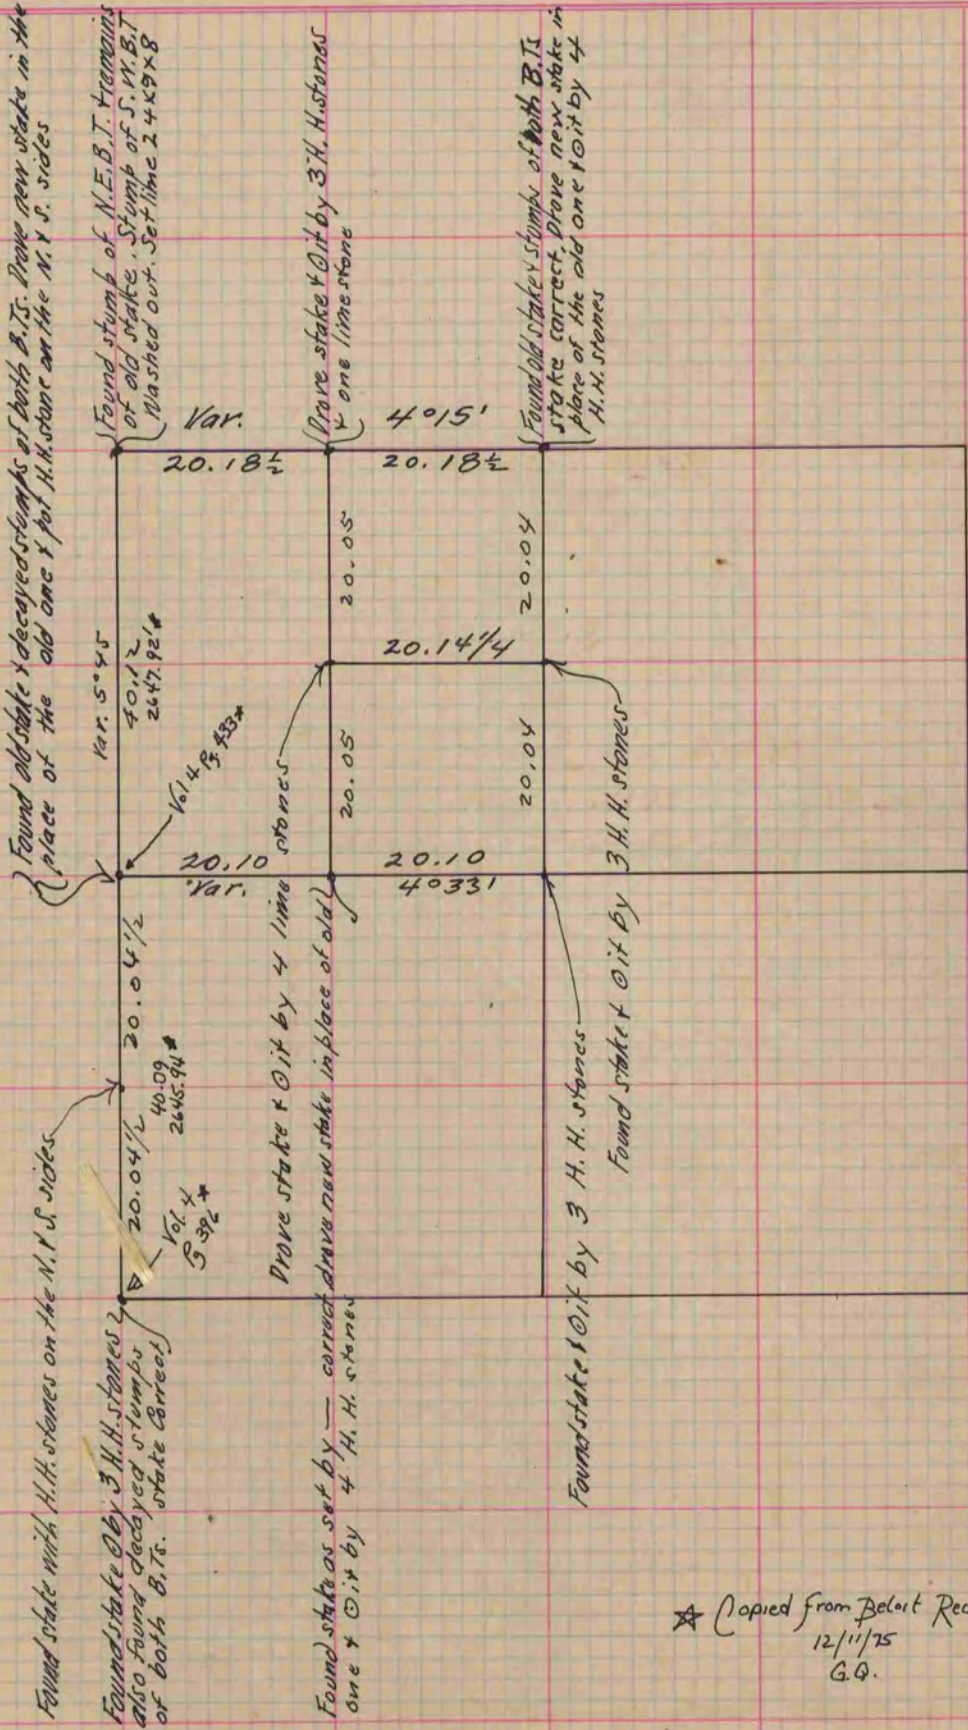 Found old stake & decayed stumps of both B.Ts. Drove new stake in the
place of the old one & put H.H. stone on the N. & S. sides
Found stump of N.E.B.T. & remains
of old stake. Stump of S.W.B.T
Washed out. Set lime 24x9x8
Drove stake & ⊙ it by 3 H.H. stones
& one limestone
Found old stake & stumps of both B.Ts
stake correct. Drove new stake in
place of the old one & ⊙ it by 4
H.H. stones
Var. 4°15'
20.18½
20.18½
Var. 5°45
40.12
2647.92'*
20.05
20.04
20.14¼
Vol 4 Pg 433*
20.05
20.04
20.10
Var.
20.10
4°33'
Drove stake & ⊙ it by 4 lime stones
20.04½
20.04½
40.09
2645.94*
Vol. 4
Pg 396*
Found stake & ⊙ it by 3 H.H. stones
Found stake & ⊙ it by 3 H.H. stones
Found stake with H.H. stones on the N. & S. sides
Found stake ⊙ by 3 H.H. stones
also found decayed stumps
of both B.Ts. stake Correct
Found stake as set by — correct drove new stake in place of old
one & ⊙ it by 4 H.H. stones
☆ Copied from Beloit Rec
12/11/75
G.Q.